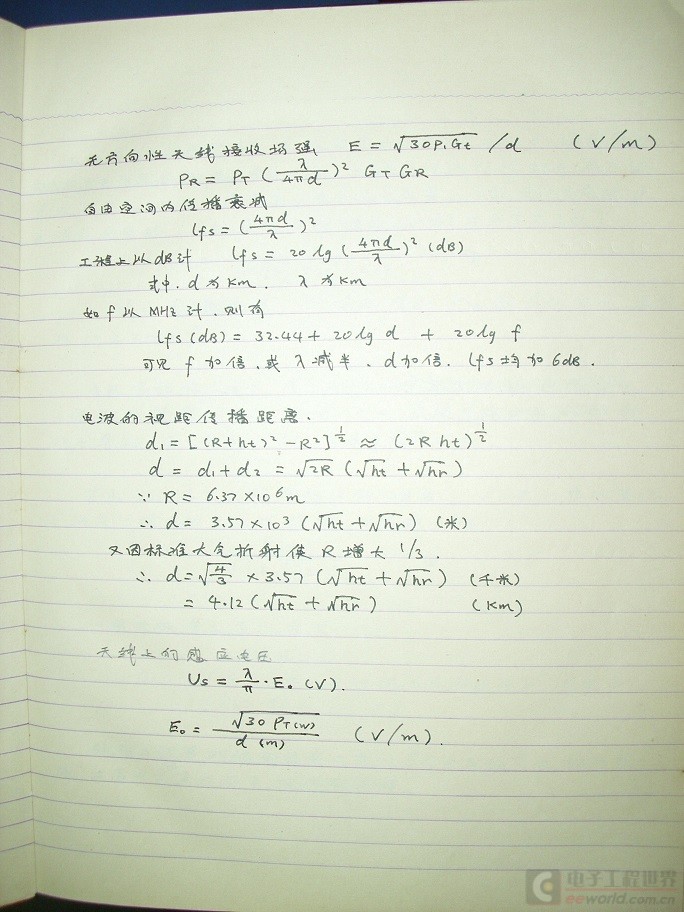 无方向性天线接收场强 E = √30P₁Gt /d (V/m)
PR = PT (λ/4πd)² GT GR
自由空间内传播衰减
lfs = (4πd/λ)²
工程上以dB计 lfs = 20 lg (4πd/λ)² (dB)
式中. d 为 Km. λ 为 Km
如 f 以 MHz 计. 则有
lfs (dB) = 32.44 + 20 lg d + 20 lg f
可见 f 加倍. 或 λ 减半. d 加倍. lfs 均加 6dB.
电波的视距传播距离.
d₁ = [(R+ht)² - R²]^½ ≈ (2R ht)^½
d = d₁ + d₂ = √2R (√ht + √hr)
∵ R = 6.37 × 10⁶ m
∴ d = 3.57 × 10³ (√ht + √hr) (米)
又因标准大气折射使 R 增大 1/3.
∴ d = √4/3 × 3.57 (√ht + √hr) (千米)
= 4.12 (√ht + √hr) (Km)
天线上的感应电压
Us = λ/π · E₀ (V).
E₀ = √30 PT(W) / d (m) (V/m).
电子工程世界
eeworld.com.cn